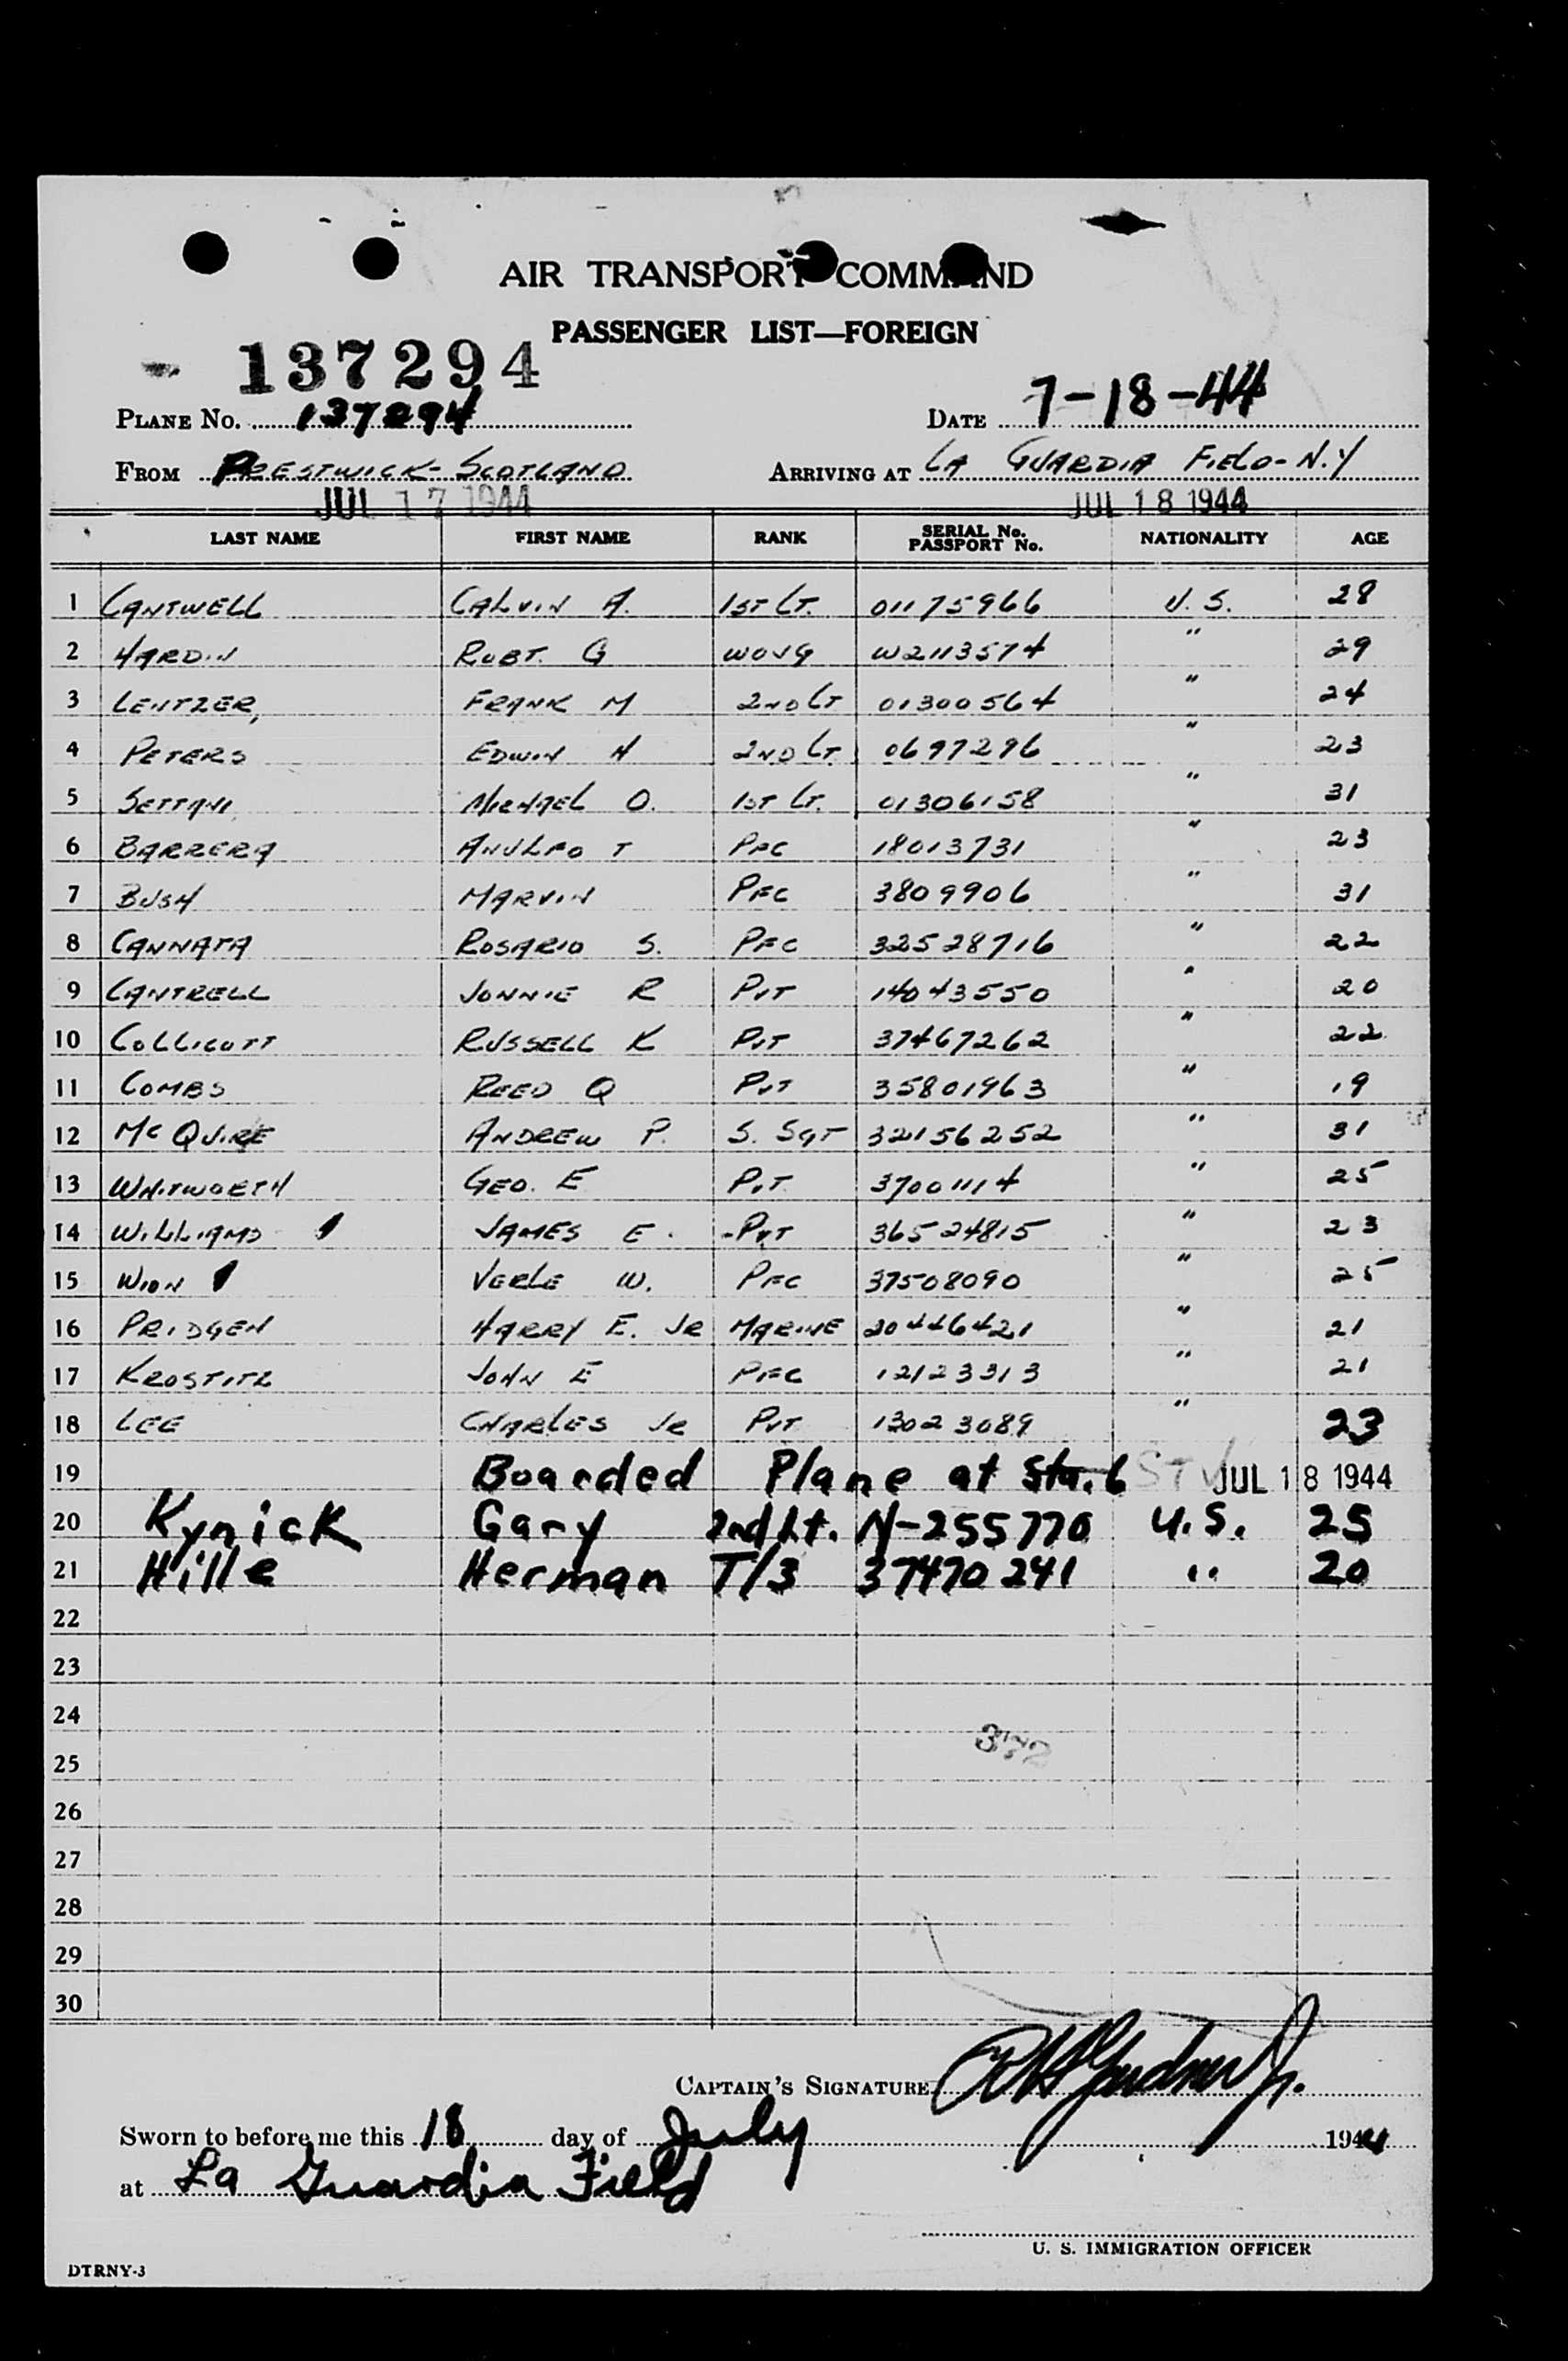 AIR TRANSPORT COMMAND
PASSENGER LIST—FOREIGN
137294
PLANE NO. 137294 DATE 7-18-44
FROM PRESTWICK-SCOTLAND ARRIVING AT LA GUARDIA FIELD-N.Y
JUL 17 1944 JUL 18 1944
LAST NAME FIRST NAME RANK SERIAL No. PASSPORT No. NATIONALITY AGE
1 CANTWELL CALVIN A. 1ST LT. 01175966 U.S. 28
2 HARDIN ROBT. G WOJG W2113574 " 29
3 LENTZER, FRANK M 2ND LT 01300564 " 24
4 PETERS EDWIN H 2ND LT. 0697296 " 23
5 SETTANI, MICHAEL O. 1ST LT. 01306158 " 31
6 BARRERA T PFC 18013731 " 23
7 BUSH MARVIN PFC 3809906 " 31
8 CANNATA ROSARIO S. PFC 32528716 " 22
9 CANTRELL JONNIE R PVT 14043550 " 20
10 COLLICOTT RUSSELL K PVT 37467262 " 22
11 COMBS REED Q PVT 35801963 " 19
12 MC QUIRE ANDREW P. S. SGT 32156252 " 31
13 WHITWORTH GEO. E PVT 37001114 " 25
14 WILLIAMS JAMES E. PVT 36524815 " 23
15 WION VERLE W. PFC 37508090 " 25
16 PRIDGEN HARRY E. JR MARINE 20446421 " 21
17 KROSTITZ JOHN E PFC 12123313 " 21
18 LEE CHARLES JR PVT 13023089 " 23
19 Boarded Plane at Sta. 6 STV JUL 18 1944
20 Kynick Gary 2nd Lt. N-255770 U.S. 25
21 Hille Herman T/3 37470241 " 20
22
23
24
25
26
27
28
29
30
372
CAPTAIN'S SIGNATURE
Sworn to before me this 18 day of July 1944
at La Guardia Field
U. S. IMMIGRATION OFFICER
DTRNY-3